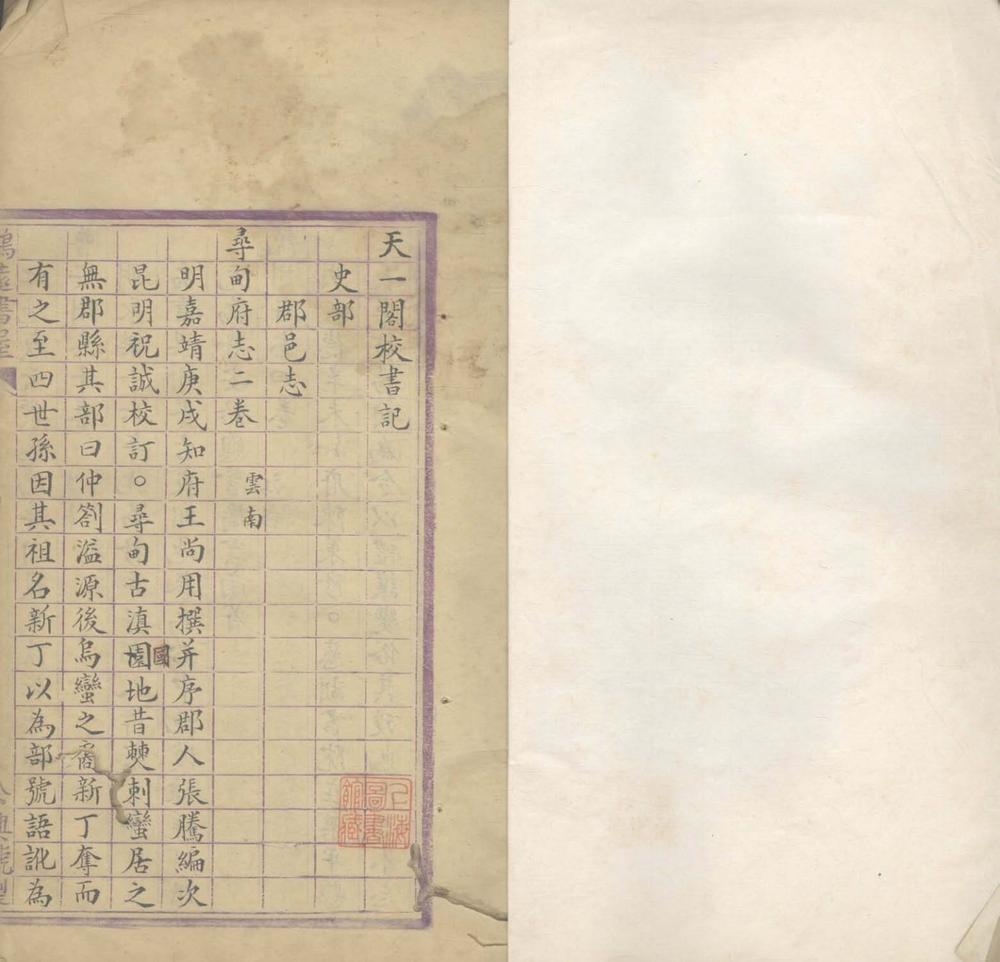 天一閣校書記
史部
郡邑志
尋甸府志二卷 雲南
明嘉靖庚戌知府王尚用撰并序郡人張騰編次
昆明祝誠校訂○尋甸古滇園國地昔僰刺蠻居之
無郡縣其部曰仲劄溢源後烏蠻之裔新丁奪而
有之至四世孫因其祖名新丁以為部號語訛為
上海圖書館藏